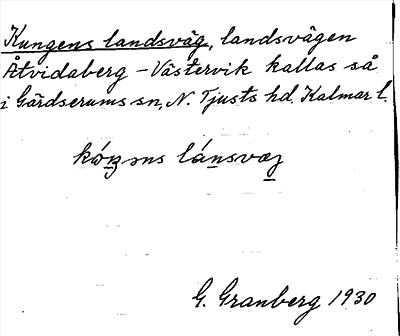 Kungens landsväg, landsvägen
Åtvidaberg – Västervik kallas så
i Gärdserums sn, N. Tjusts hd. Kalmar l.
kóŋəns lánsvæg
G. Granberg 1930